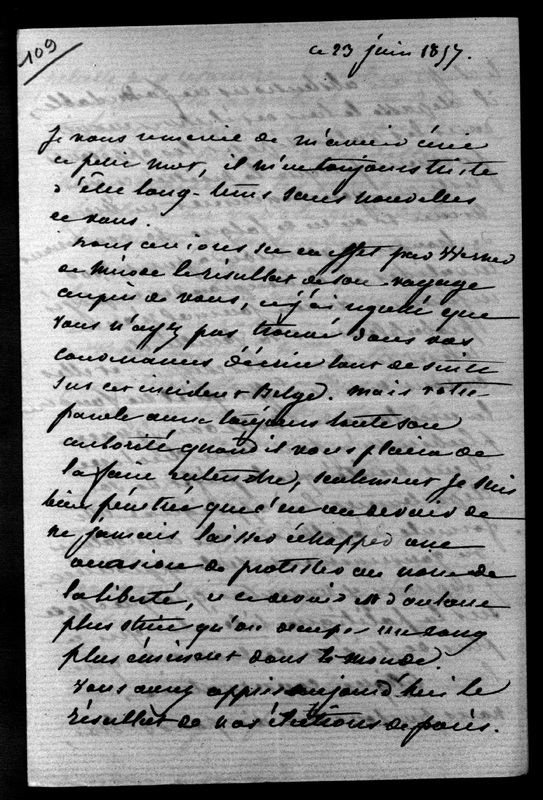 109
ce 23 juin 1857.
Je vous remercie de m'avoir écrit
ce petit mot, il m'est toujours triste
d'être long-tems sans nouvelles
de vous.
nous avions su en effet par Werner
de Mérode le résultat de son voyage
auprès de vous, et j'ai regretté que
vous n'ayez pas trouvé dans vos
convenances d'écrire tout de suite
sur cet incident Belge. mais votre
parole aura toujours toute son
autorité quand il vous plaira de
la faire entendre, seulement je suis
bien pénétrée que c'est un devoir de
ne jamais laisser échapper une
occasion de protester au nom de
la liberté, et ce devoir est d'autant
plus strict qu'on occupe un rang
plus éminent dans le monde.
Vous aurez appris aujourd'hui le
résultat de nos élections de paris.